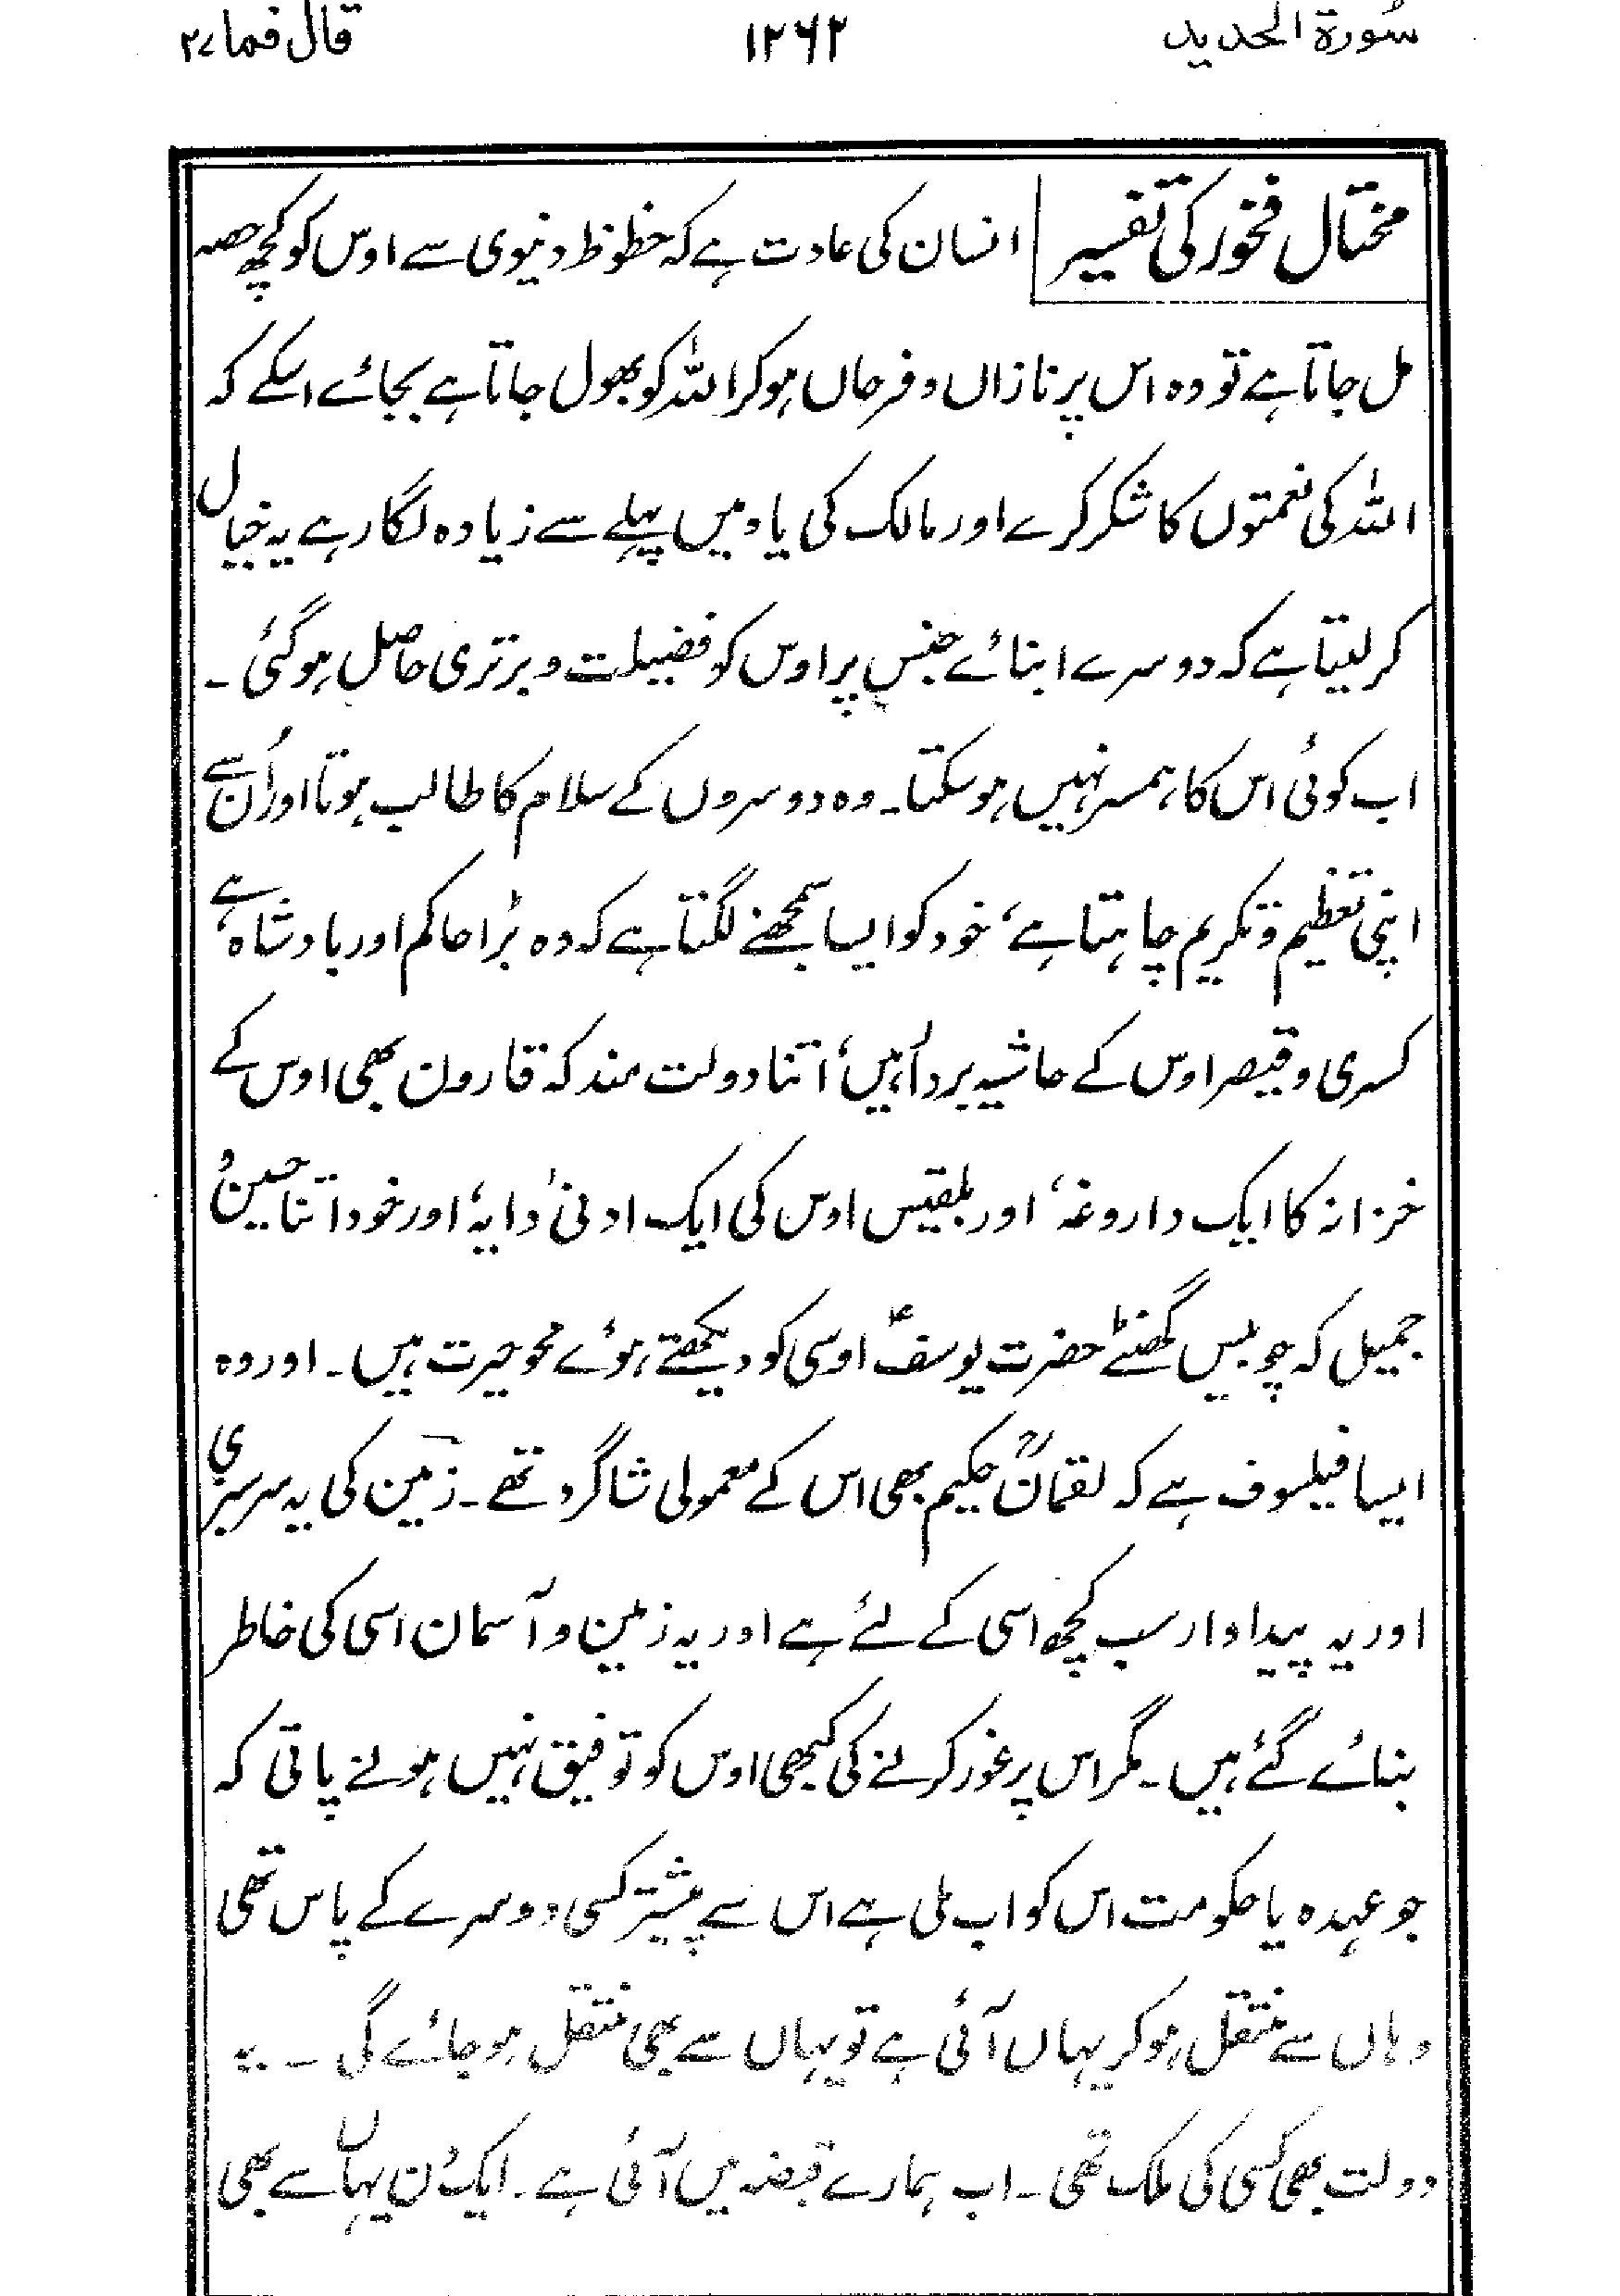 سُورۃ الحدید ۱۲۶۲ قال فما ۲۷
مختال فخور کی تفسیر انسان کی عادت ہے کہ حظوظ دنیوی سے اوس کو کچھ حصہ
مل جاتا ہے تو وہ اس پر نازاں و فرحاں ہوکر اللہ کو بھول جاتا ہے بجائے اسکے کہ
اللہ کی نعمتوں کا شکر کرے اور مالک کی یاد میں پہلے سے زیادہ لگا رہے یہ خیال
کرلیتا ہے کہ دوسرے ابنائے جنس پر اوس کو فضیلت و برتری حاصل ہوگئی ۔
اب کوئی اس کا ہمسر نہیں ہوسکتا۔ وہ دوسروں کے سلام کا طالب ہوتا اور اُن سے
اپنی تعظیم و تکریم چاہتا ہے، خود کو ایسا سمجھنے لگتا ہے کہ وہ بڑا حاکم اور بادشاہ ہے،
کسری و قیصر اوس کے حاشیہ بردار ہیں، اتنا دولت مند کہ قارون بھی اوس کے
خزانہ کا ایک داروغہ، اور بلقیس اوس کی ایک ادنیٰ دایہ، اور خود اتنا حسین و
جمیل کہ چوبیس گھنٹے حضرت یوسفؑ اوسی کو دیکھتے ہوئے محو حیرت ہیں۔ اور وہ
ایسا فیلسوف ہے کہ لقمانؒ حکیم بھی اس کے معمولی شاگرد تھے۔ زمین کی یہ سرسبزی
اور یہ پیداوار سب کچھ اسی کے لئے ہے اور یہ زمین و آسمان اسی کی خاطر
بنائے گئے ہیں۔ مگر اس پر غور کرنے کی کبھی اوس کو توفیق نہیں ہونے پاتی کہ
جو عہدہ یا حکومت اس کو اب ملی ہے اس سے پیشتر کسی دوسرے کے پاس تھی
وہاں سے منتقل ہوکر یہاں آئی ہے تو یہاں سے بھی منتقل ہوجائے گی ۔ یہ
دولت بھی کسی کی ملک تھی۔ اب ہمارے قبضہ میں آئی ہے۔ ایک دن یہاں سے بھی